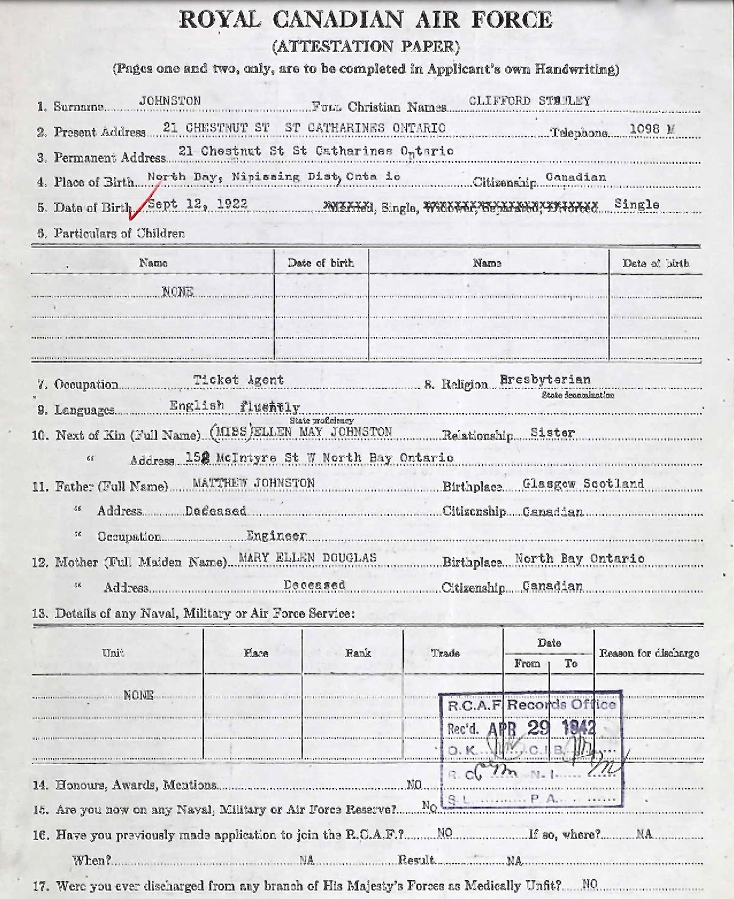 ROYAL CANADIAN AIR FORCE
(ATTESTATION PAPER)
(Pages one and two, only, are to be completed in Applicant's own Handwriting)
1. Surname JOHNSTON Full Christian Names CLIFFORD STANLEY
2. Present Address 21 CHESTNUT ST ST CATHARINES ONTARIO Telephone 1098 M
3. Permanent Address 21 Chestnut St St Catharines Ontario
4. Place of Birth North Bay, Nipissing Dist, Onta io Citizenship Canadian
5. Date of Birth Sept 12, 1922 Married, Single, Widower, Separated, Divorced Single
6. Particulars of Children
Name Date of birth Name Date of birth
NONE
7. Occupation Ticket Agent 8. Religion Presbyterian
State denomination
9. Languages English fluently
State proficiency
10. Next of Kin (Full Name) (MISS) ELLEN MAY JOHNSTON Relationship Sister
" Address McIntyre St W North Bay Ontario
11. Father (Full Name) MATTHEW JOHNSTON Birthplace Glasgow Scotland
" Address Deceased Citizenship Canadian
" Occupation Engineer
12. Mother (Full Maiden Name) MARY ELLEN DOUGLAS Birthplace North Bay Ontario
" Address Deceased Citizenship Canadian
13. Details of any Naval, Military or Air Force Service:
Unit Place Rank Trade Date Reason for discharge
From To
NONE
R.C.A.F Records Office
Rec'd. APR 29 1942
O.K. C.I.B.
R.C. N.I.
S.L. P.A.
14. Honours, Awards, Mentions NO
15. Are you now on any Naval, Military or Air Force Reserve? NO
16. Have you previously made application to join the R.C.A.F.? NO If so, where? NA
When? NA Result NA
17. Were you ever discharged from any branch of His Majesty's Forces as Medically Unfit? NO